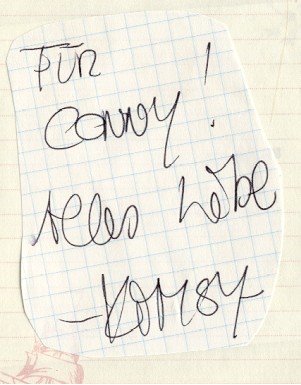 Für
Conny!
Alles Liebe